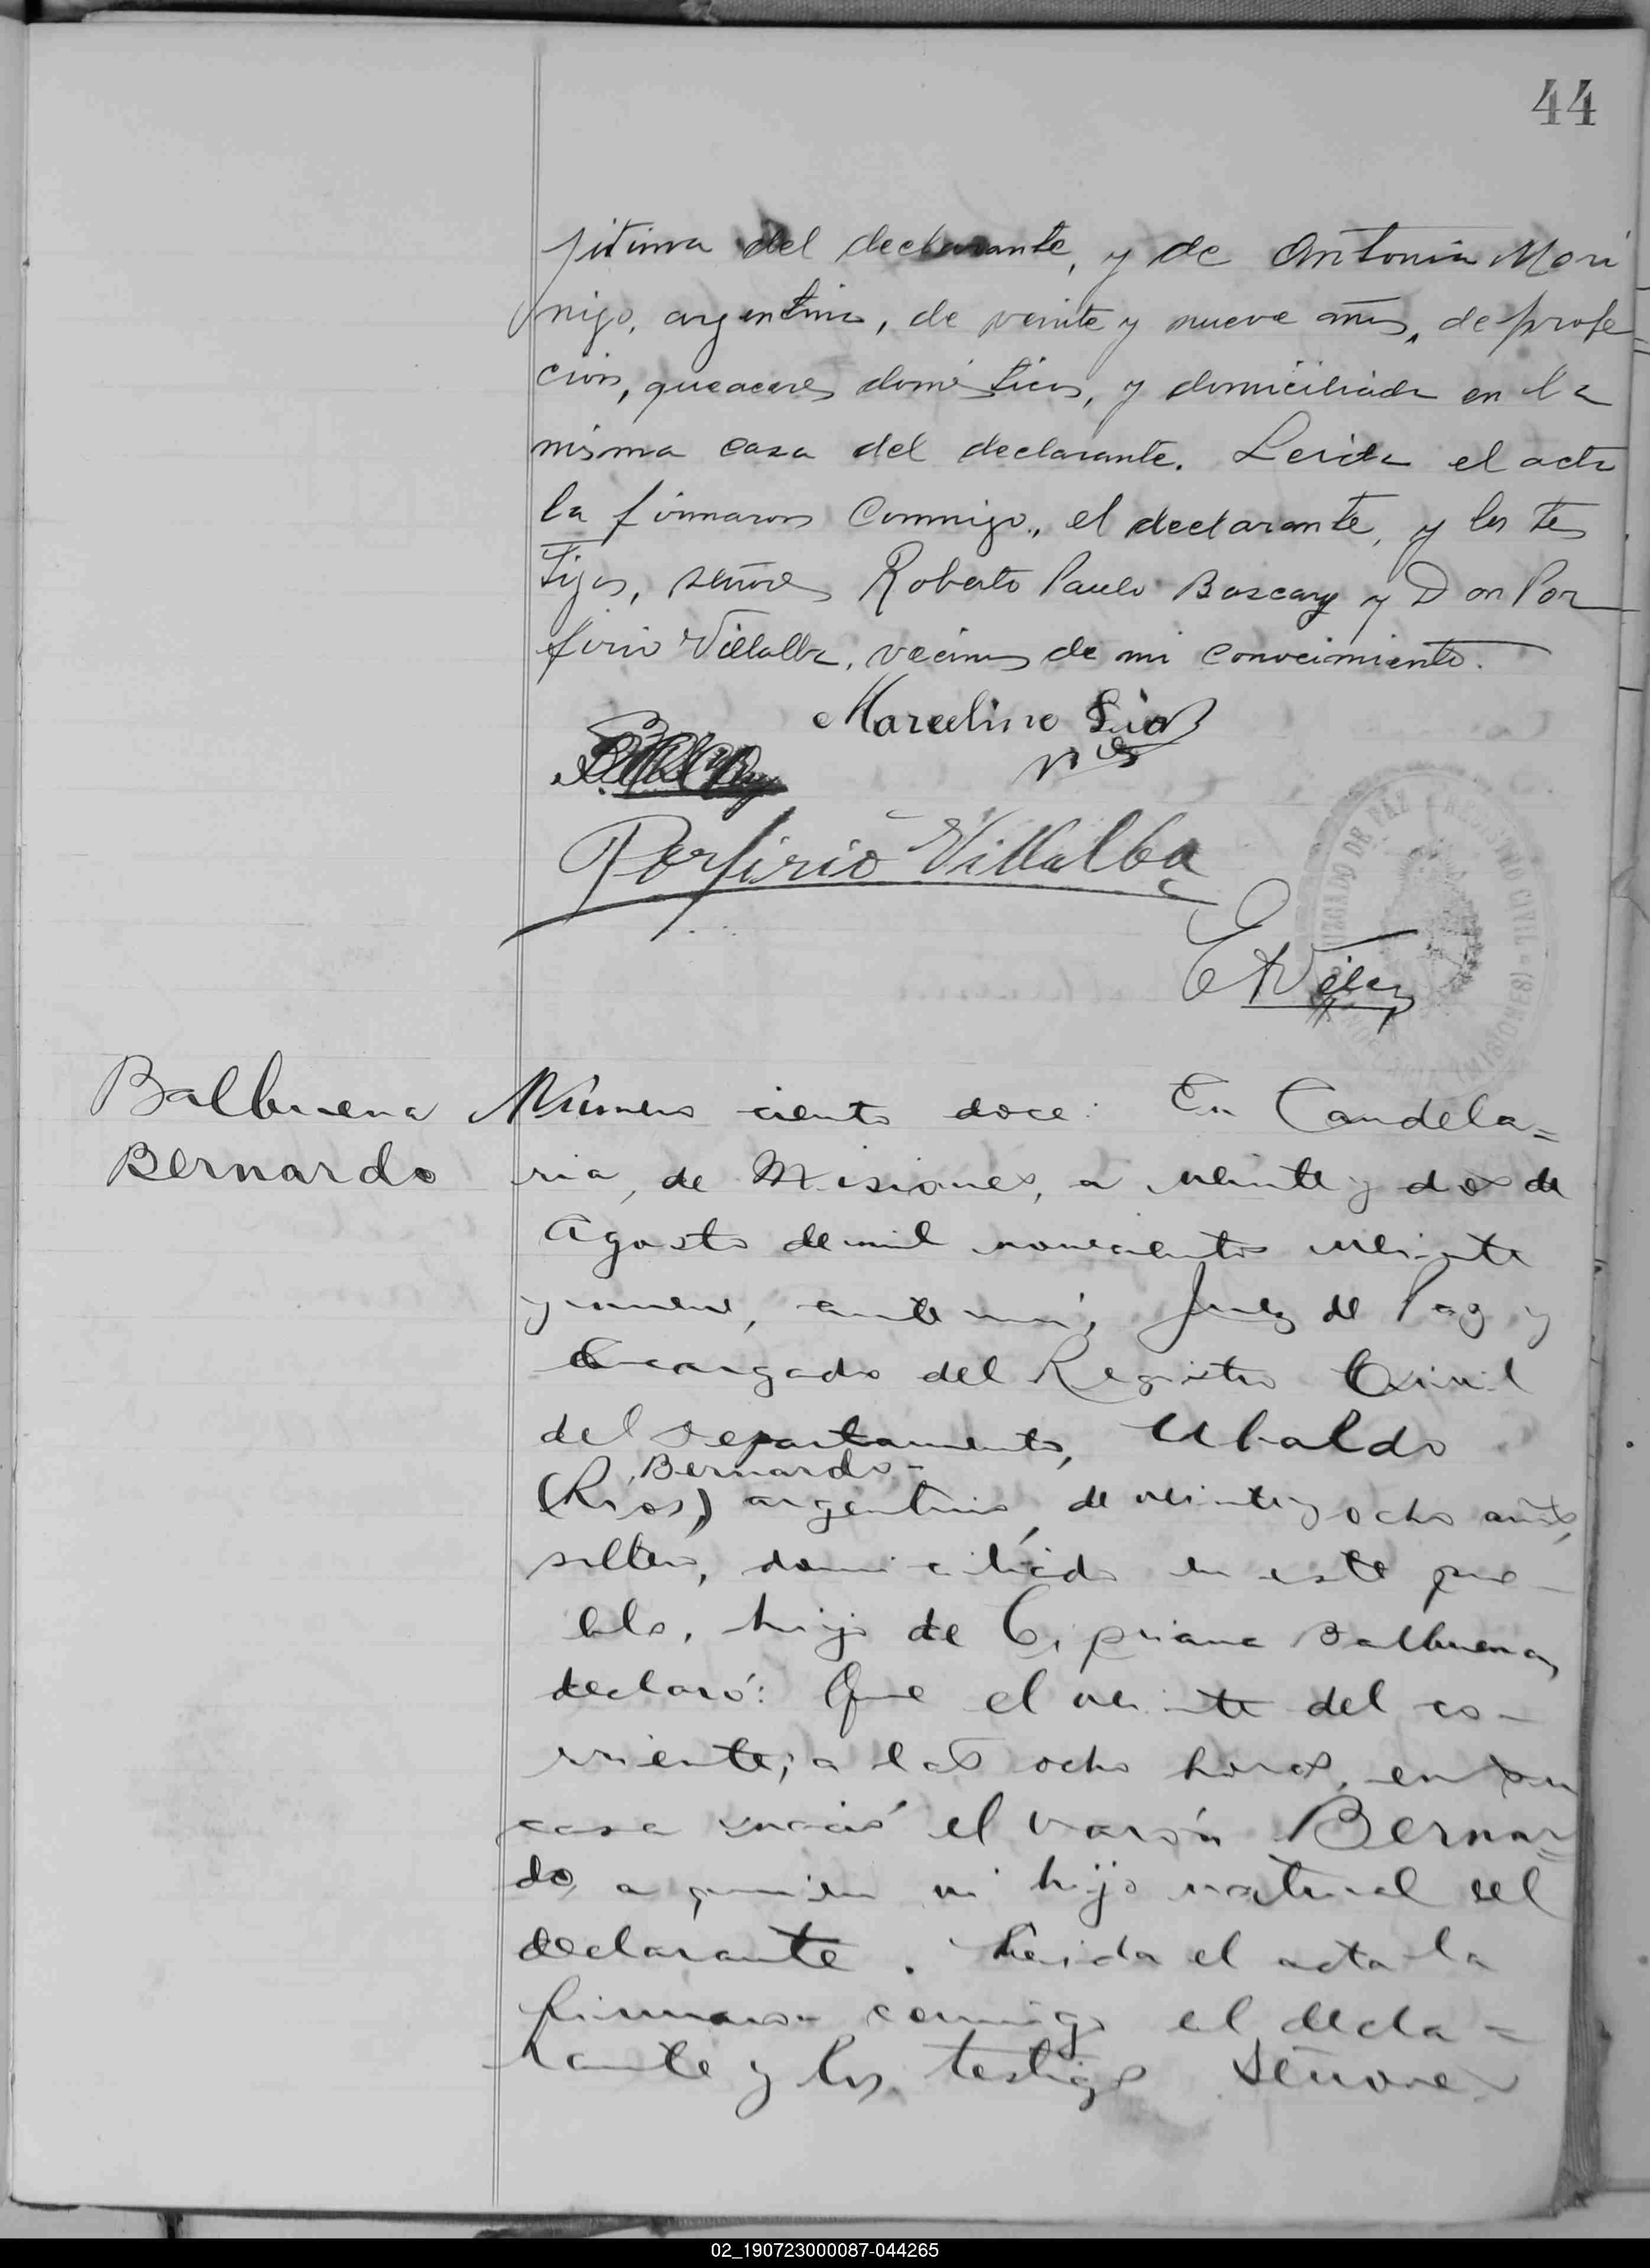 44
jitima del declarante, y de Antonia Mori
nigo, argentina, de veinte y nueve años, de profe
cion, queaceres domesticos, y domiciliada en la
misma casa del declarante. Leida el acta
la firmaron conmigo, el declarante, y los tes
tigos, señores Roberto Paulo Boscary y Don Por
firio Villalba, vecinos de mi conocimiento.
Marcelino
Porfirio Villalba
JUZGADO DE PAZ Y REGISTRO CIVIL
(MISIONES)
Balbuena
Bernardo
Número ciento doce: En Candela=
ria, de Misiones, a veinte y dos de
Agosto de mil novecientos veinte
y nueve, ante mi, Juez de Paz y
Encargado del Registro Civil
del Departamento, Ubaldo
Bernardo-
(Rios,) argentino, de veinte y ocho años,
soltero, domiciliado en este pue-
blo, hijo de Cipriana Balbuena,
declaró: Que el veinte del co-
rriente, a las ocho horas, en su
casa nació el varón Bernar=
do, a quien vi hijo natural del
declarante. Leida el acta la
firmaron conmigo el decla=
rante y los testigos señores
02_190723000087-044265